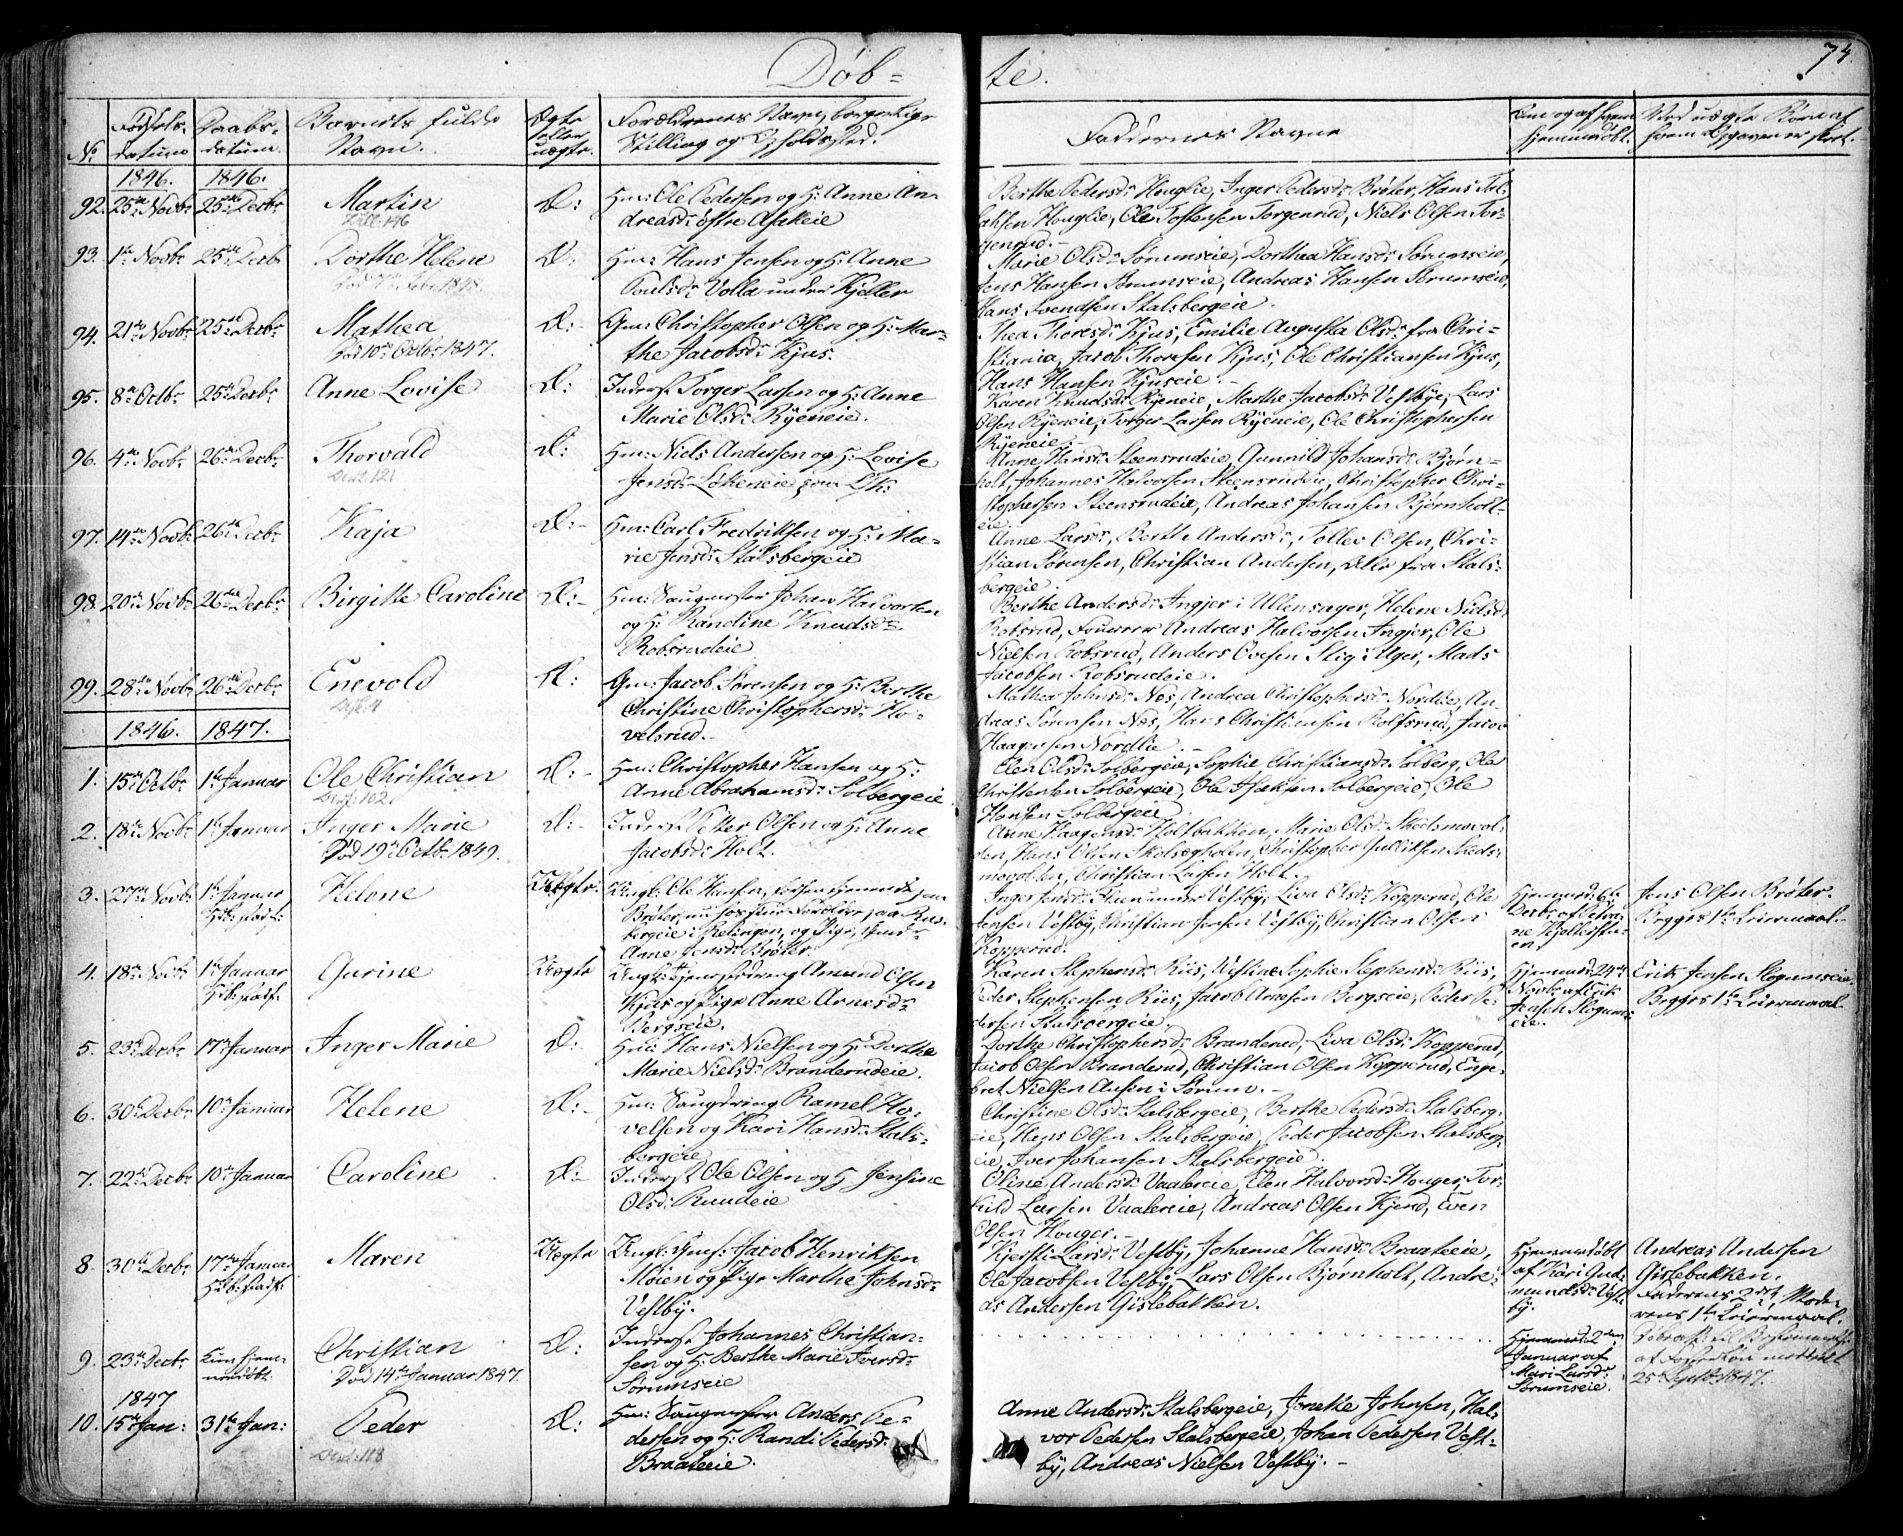 Døb=
te.
74.
No.
Fødsels-
datum
Daabs-
datum.
Barnets fulde
Navn.
Ægte
eller
uægte.
Forældrenes Navn, borgerlige
Stilling og Opholdssted.
Faddernes Navne
Om og af hvem
hjemmedøbt.
Ved uægte Børn af
hvem Opgaven er skeet.
1846. 1846.
92. 25de Novbr 25de Decbr Martin Æ: Hm: Ole Pedersen og H: Anne An-
dreasd: østre Asakeie
Berthe Pedersd: Houglie, Inger Pedersd: Brøter, Hans Tol-
laksen Houglie, Ole Tostensen Torgenrud, Niels Olsen Tor-
genrud.
93. 1te Novbr 25de Decbr Dorthe Helene Æ: Hm: Hans Jensen og H: Anne
Poulsd: Volla under Kjeller
Marie Olsd: Sørumseie, Dorthea Hansd: Sørumseie,
Jens Hansen Sørumseie, Andreas Hansen Sørumseie,
Hans Svendsen Stalsbergeie.
94. 21de Novbr 25de Decbr Mathea Æ:- Gm: Christopher Olsen og H: Mar-
Død 10de Octbr 1847. the Jacobsd: Kjus.
Thea Thoresd: Kjus, Emilie Augusta Olsd: fra Chri-
stiania, Jacob Thoresen Kjus, Ole Christiansen Kjus,
Hans Hansen Kjuseie.-
95. 8de Octbr 25de Decbr Anne Lovise Æ: Inderst Torger Larsen og H: Anne
Marie Olsd: Ryeneie.
Karen Knudsd: Ryeneie, Marthe Jacobsd: Vestbye, Lars
Olsen Ryeneie, Torger Larsen Ryeneie, Ole Christophersen
Ryeneie.-
96. 4de Novbr 26de Decbr Thorvald Æ: Hm: Niels Andersen og H: Lovise
Jensd: Lekeneie
Anne Hansd: Steensrudeie, Gunnild Johansd: Bjørn-
holt, Johannes Halvorsen Steensrudeie, Christopher Chri-
stophersen Steensrudeie, Andreas Johansen Bjørnholt-
eie.
97. 14de Novbr 26de Decbr Kaja Æ:- Hm: Carl Fredriksen og H: Ma-
rie Jensd: Stalsbergeie
Anne Larsd:, Berthe Andersd:, Tollev Olsen, Chri-
stian Sørensen, Christian Andersen, alle fra Stals-
bergeie.
98. 20de Novbr 26de Decbr Birgitte Caroline Æ:- Hm: Saugmester Johan Halvorsen
og H: Randine Knudsd:
Robsrudeie
Berthe Andersd: Ingjer i Ullensager, Helene Nielsd:
Robsrud, Andreas Halvorsen Ingjer, Ole
Nielsen Robsrud, Anders Ovesen Slig i Uger, Mads
Jacobsen Robsrudeie.
99. 28de Novbr 26de Decbr Enevold Æ: Gm: Jacob Sørensen og H: Berthe
Christine Christophersd: Ho-
velsrud.-
Mathea Johnsd: Nos, Andrea Christophersd: Nordlie, An-
dreas Sørensen Nos, Hans Christiansen Rolfsrud, Jacob
Haagensen Nordlie.-
1846. 1847.
1. 15de Octbr 1te Januar Ole Christian Æ:- Hm: Christopher Hansen og H:
Anne Abrahamsd: Solbergeie
Elen Olsd: Solbergeie, Sophie Christiansd: Solberg, Ole
Christensen Solbergeie, Ole Isaksen Solbergeie, Ole
Hansen Solbergeie
2. 18de Novbr 1te Januar Inger Marie Æ:- Inderst Petter Olsen og H: Anne
Død 19de Octbr 1849. Jacobsd: Holt.
Anne Haagensd: Holtbakken, Marie Olsd: Skedsmovol-
den, Hans Olsen Skolsegholen, Christopher Gulliksen Skeds-
movolden, Christian Larsen Holt.
3. 27de Novbr 1te Januar Helene Uægte Ungk: Ole Hansen, før tjenende paa
Brøter, nu
bergeie i Relingen, og Pige
Anne Jensd: Brøter.
Inger under Vestby, Liva Olsd: Kopperud, Ole
Jensen Vestby, Christian Jensen Vestby, Christian Olsen
Kopperud.
Hjemmed: 6te
Decbr af
Jens Olsen Brøter.
Begges 1te Leiermaal.
4. 18de Novbr 1te Januar Gurine Uægte Ungk: Tjenestedreng Amund Olsen
Kjus og Pige Anne Arnesd:
Bergseie.
Karen Stephensd: Riis, Sophie Stephensd: Riis,
Peder Stephensen Riis, Jacob Arnesen Bergseie, Peder Pe-
dersen Stalsbergeie.
Hjemmed: 24de
Novbr af Erik
Jensen Slogums-
eie.
Erik Jensen Slogumseie.
Begges 1te Leiermaal
5. 23de Decbr 17de Januar Inger Marie Æ: Hm: Hans Nielsen og H: Dorthe
Marie Nielsd: Branderudeie.
Dorthe Christophersd: Branderud, Liva Olsd: Kopperud,
Jacob Olsen Branderud, Christian Olsen Kopperud, Enge-
bret Nielsen Ausen i Sørum.-
6. 30te Decbr 10de Januar Helene Æ:- Hm: Saugdreng Ramel Ho-
velsen og Kari Hansd: Stals-
bergeie
Christine Olsd: Stalsbergeie, Berthe Pedersd: Stalsberg-
eie, Hans Olsen Stalsbergeie, Peder Jacobsen Stalsberg-
eie, Iver Johansen Stalsbergeie.
7. 22de Decbr 10de Januar Caroline Æ:- Inderst Ole Olsen og H: Jensine
Olsd: Ruudeie
Oline Andersd: Vaalereie, Elen Halvorsd: Houger, Tor-
kild Larsen Vaalereie, Andreas Olsen Kjend, Even
Olsen Houger.-
8. 30te Decbr 17de Januar Maren Uægte Ungk: Gms: Jacob Henriksen
Moien og Pige Marthe Johnsd:
Vestby.
Kjersti Larsd: Vestby, Johanne Hansd: Braateeie,
Ole Jacobsen Vestby, Lars Olsen Bjørnholt, Andre-
as Andersen Gislebakken.
Hjemmedøbt
af Kari Gud-
mundsd: Vest-
by.
Andreas Andersen
Gislebakken.
Faderens 2det, Mode-
rens 1te Leiermaal.
9. 23de Decbr Kun hjem-
medøbt. Christian Æ: Inderst Johannes Christian-
Død 14de Januar 1847. sen og H: Berthe Marie Iversd:
Sørumseie
Hjemmed: 2den
Januar af
Mari Larsd:
Sørumseie.
25de Septbr 1847.
1847
10. 15de Jan: 31te Jan: Peder Æ: Hm: Saugmester Anders Pe-
dersen og H: Randi Pedersd:
Braateeie.
Anne Andersd: Stalsbergeie, Johnsen, Hal-
vor Pedersen Stalsbergeie, Johan Pedersen Vest-
by, Andreas Nielsen Vestby.-